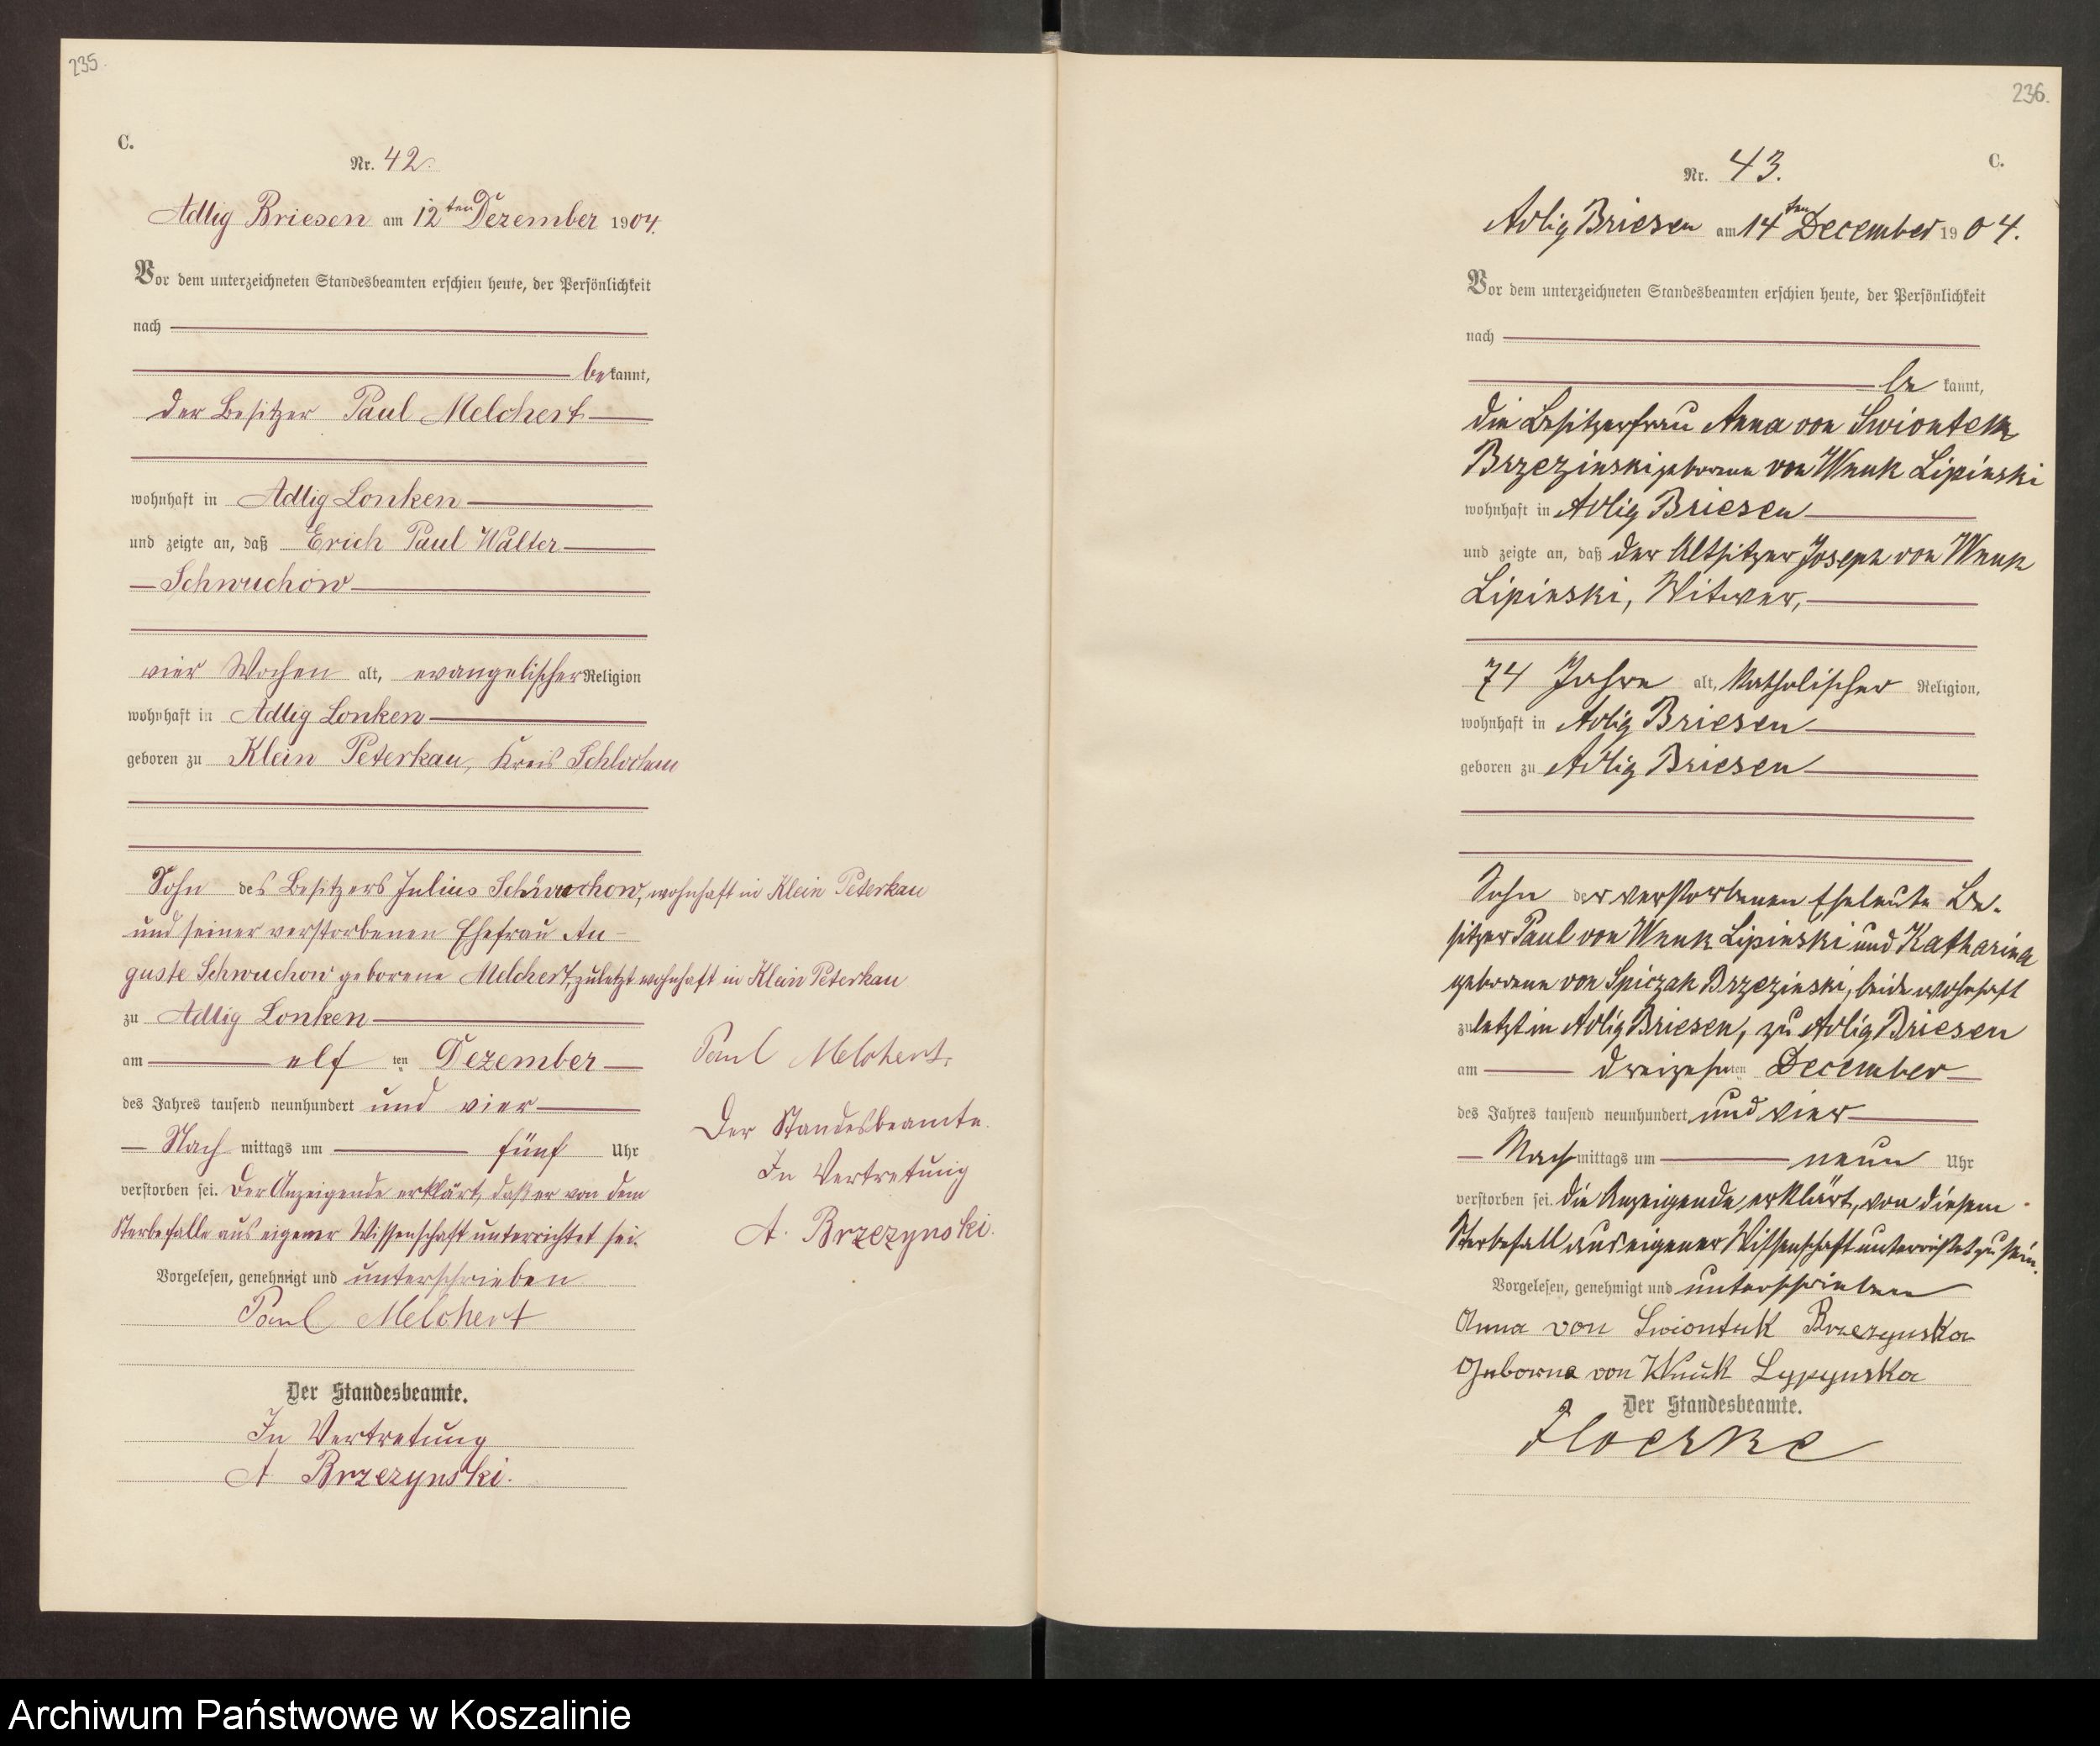 235.
C.
Nr. 42.
Adlig Briesen am 12ten Dezember 1904.
Vor dem unterzeichneten Standesbeamten erschien heute, der Persönlichkeit
nach
bekannt,
der Besitzer Paul Melchert
wohnhaft in Adlig Lonken
und zeigte an, daß Erich Paul Walter
Schwuchow
vier Wochen alt, evangelischer Religion
wohnhaft in Adlig Lonken
geboren zu Klein Peterkau, Kreis Schlochau
Sohn des Besitzers Julius Schwuchow, wohnhaft in Klein Peterkau
und seiner verstorbenen Ehefrau Au-
guste Schwuchow geborene Melchert, zuletzt wohnhaft in Klein Peterkau
zu Adlig Lonken
am elf ten Dezember
des Jahres tausend neunhundert und vier
Nach mittags um fünf Uhr
verstorben sei. Der Anzeigende erklärt, daß er von dem
Sterbefalle aus eigener Wissenschaft unterrichtet sei.
Vorgelesen, genehmigt und unterschrieben
Paul Melchert
Der Standesbeamte.
In Vertretung
A Brzezynski.
Paul Melchert.
Der Standesbeamte.
In Vertretung
A. Brzezynski.
236.
C.
Nr. 43.
Adlig Briesen am 14ten December 1904.
Vor dem unterzeichneten Standesbeamten erschien heute, der Persönlichkeit
nach
be kannt,
die Besitzerfrau Anna von Swiontek
Brzezinski geborene von Wnuk Lipinski
wohnhaft in Adlig Briesen
und zeigte an, daß der Altsitzer Joseph von Wnuk
Lipinski, Witwer,
74 Jahre alt, katholischer Religion,
wohnhaft in Adlig Briesen
geboren zu Adlig Briesen
Sohn der verstorbenen Eheleute Be-
sitzer Paul von Wnuk Lipinski und Katharina
geborene von Spiczak Brzezinski, beide wohnhaft
zuletzt in Adlig Briesen, zu Adlig Briesen
am dreizehnten December
des Jahres tausend neunhundert und vier
Nach mittags um neun Uhr
verstorben sei. Die Anzeigende erklärt, von diesem
Sterbefall aus eigener Wissenschaft unterrichtet zu sein.
Vorgelesen, genehmigt und unterschrieben
Anna von Swiontek Brzezynska
Geborne von Wnuk Lypynska
Der Standesbeamte.
Archiwum Państwowe w Koszalinie